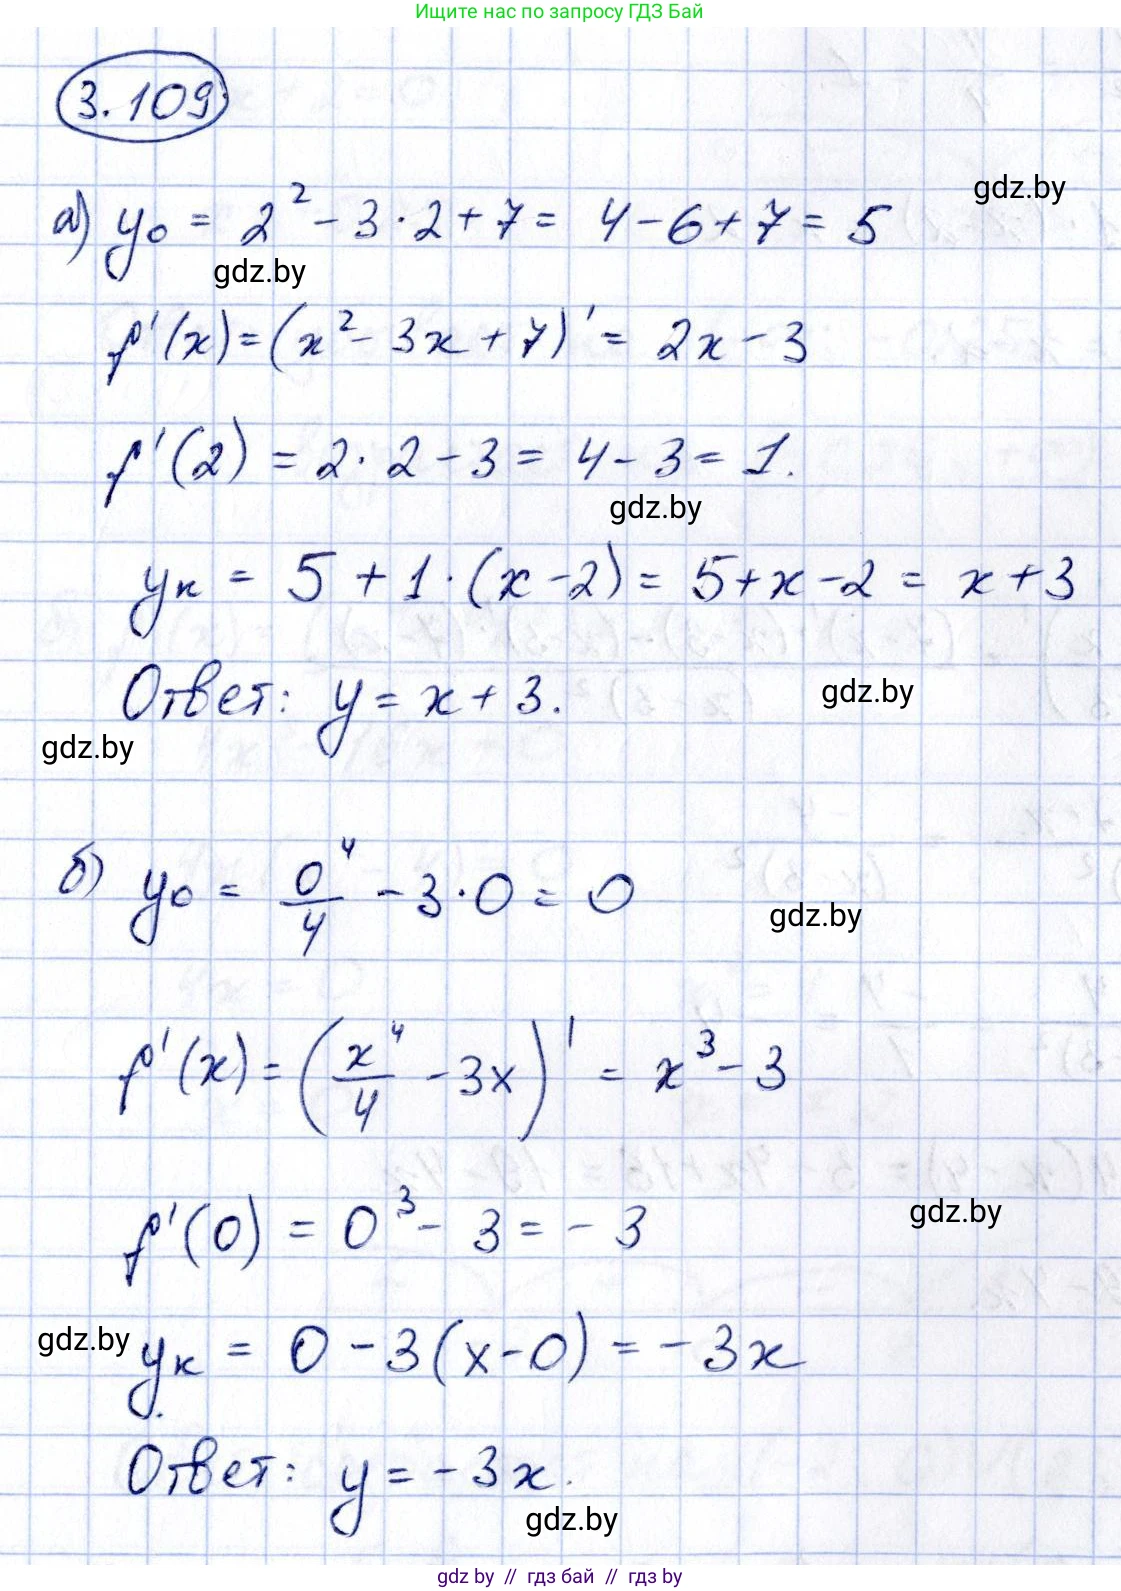 Ищите нас по запросу ГДЗ Бай
3.109
gdz.by
а) y₀ = 2² - 3·2 + 7 = 4 - 6 + 7 = 5
gdz.by
f'(x) = (x² - 3x + 7)' = 2x - 3
f'(2) = 2·2 - 3 = 4 - 3 = 1.
gdz.by
yₖ = 5 + 1·(x - 2) = 5 + x - 2 = x + 3
Ответ: y = x + 3.
gdz.by
gdz.by
б) y₀ = 0⁴/4 - 3·0 = 0
gdz.by
f'(x) = (x⁴/4 - 3x)' = x³ - 3
f'(0) = 0³ - 3 = -3
gdz.by
gdz.by
yₖ = 0 - 3(x - 0) = -3x
Ответ: y = -3x.
gdz.by
gdz by // гдз бай // гдз by